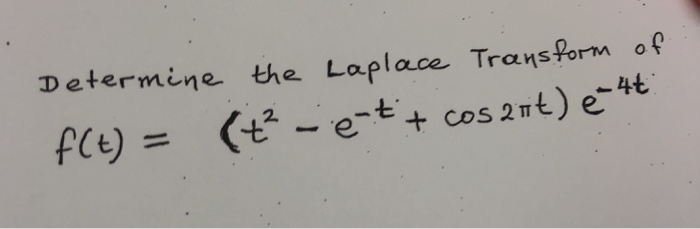 Determine the Laplace Transform of
f(t) = (t² - e⁻ᵗ + cos 2πt) e⁻⁴ᵗ